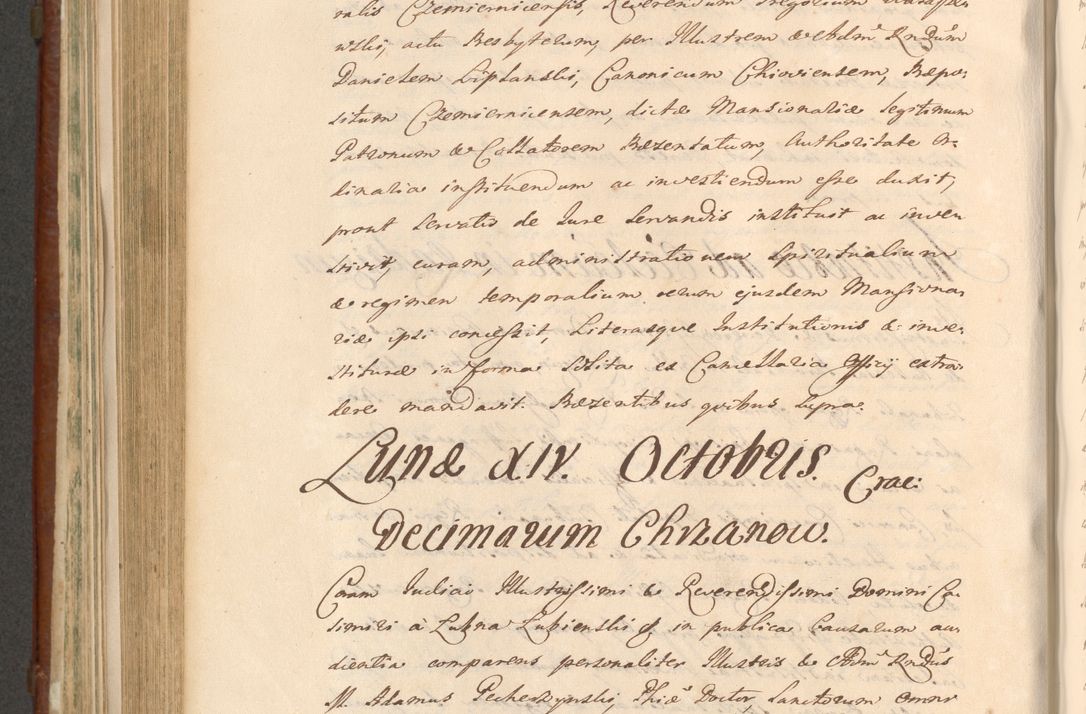 ralis Czemiernicensis, Reverendum Gregorium
wski, actu Presbyterum, per Illustrem & Adm. Rndum
Danielem Liplanski, Canonicum Chioviensem, Præpo-
situm Czemiernicensem, dictæ Mansionariæ legitimum
Patronum & Collatorem Præzentatum, Authoritate Or-
dinaria instituendum ac investiendum esse duxit,
prout servatis de Jure servandis instituit ac inves-
tivit, curam, administrationem spiritualium
& regimen temporalium rerum ejusdem Mansiona-
riæ ipsi concessit, Literasque Institutionis & inve-
stituræ in forma solita ex Cancellaria Officij extra-
dere mandavit. Præzentibus quibus supra.
Lunæ XIV. Octobris. Crac:
Decimarum Chrzanow.
Coram Judicio Illustrissimi & Reverendissimi Domini Ca-
simiri à Lubna Lubienski &, in publica Causarum au-
dientia comparens personaliter Illustris & Adm. Rndus
M. Adamus Pecherzynski, Phiæ Doctor, Sanctorum Omni